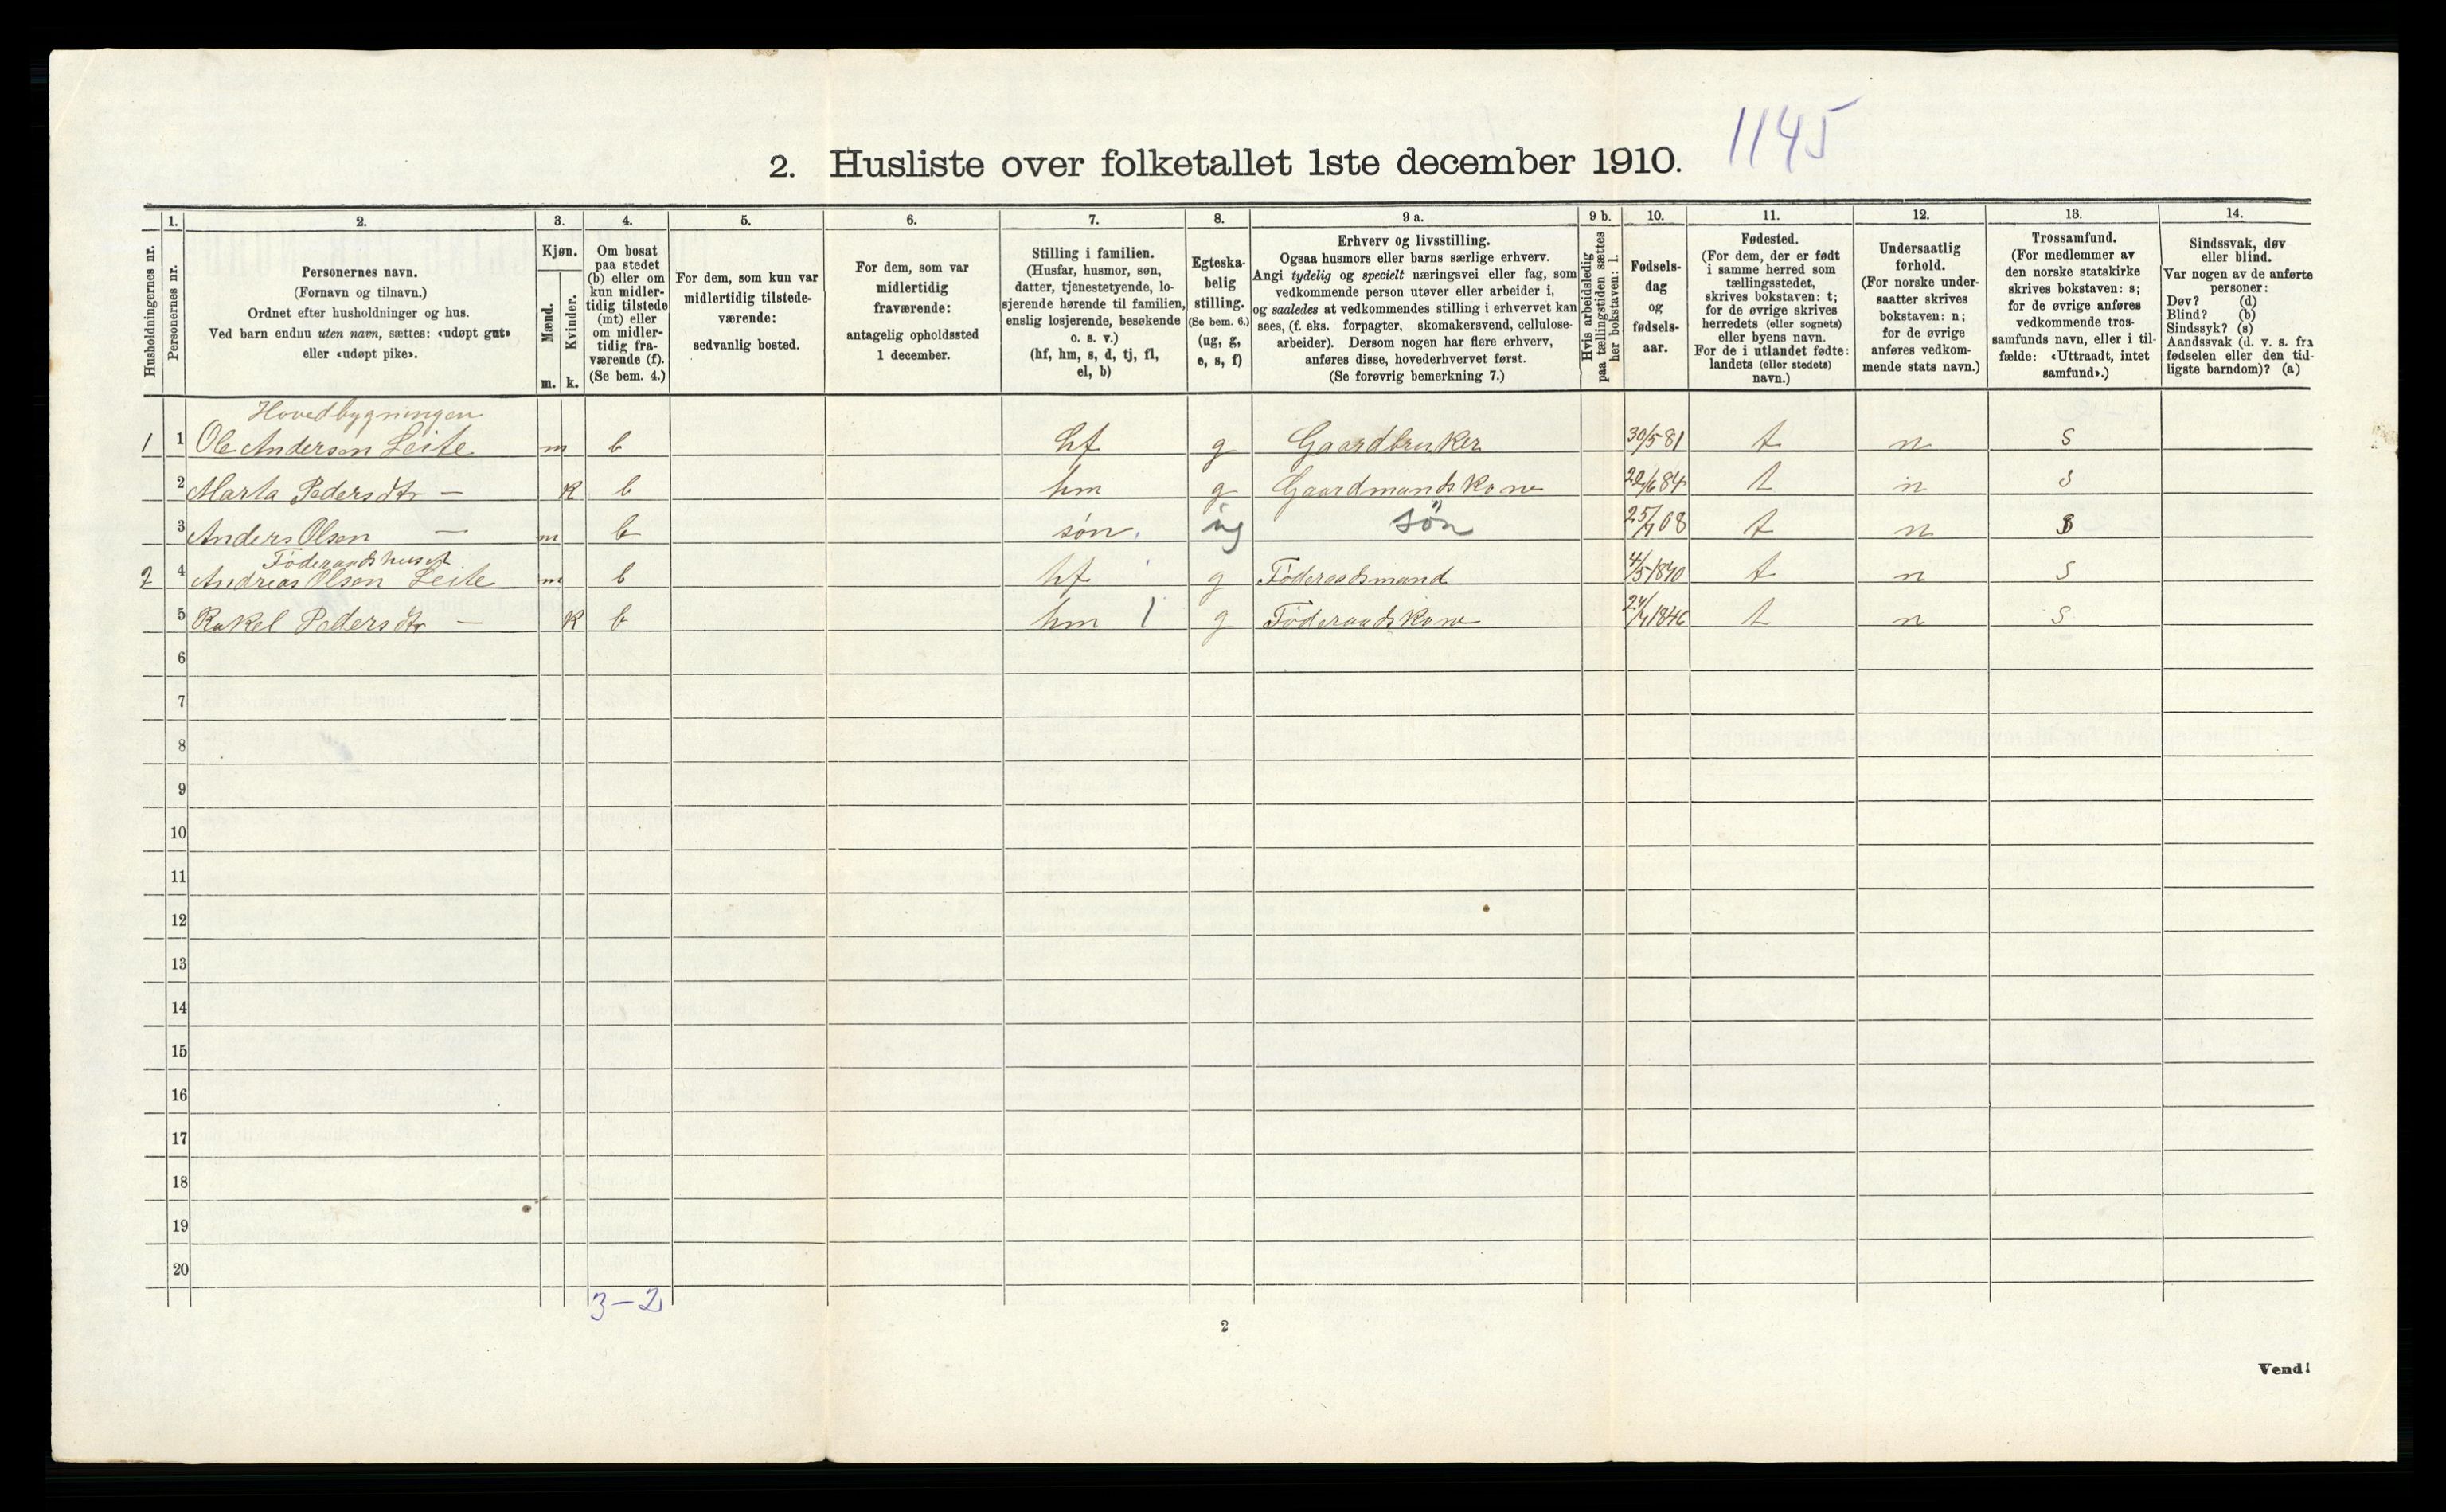 1145
2. Husliste over folketallet 1ste december 1910.
Husholdningernes nr.
1.
Personernes nr.
2.
Personernes navn.
(Fornavn og tilnavn.)
Ordnet efter husholdninger og hus.
Ved barn endnu uten navn, sættes: «udøpt gut»
eller «udøpt pike».
3.
Kjøn.
Mænd.
Kvinder.
m. k.
4.
Om bosat
paa stedet
(b) eller om
kun midler-
tidig tilstede
(mt) eller
om midler-
tidig fra-
værende (f).
(Se bem. 4.)
5.
For dem, som kun var
midlertidig tilstede-
værende:
sedvanlig bosted.
6.
For dem, som var
midlertidig
fraværende:
antagelig opholdssted
1 december.
7.
Stilling i familien.
(Husfar, husmor, søn,
datter, tjenestetyende, lo-
sjerende hørende til familien,
enslig losjerende, besøkende
o. s. v.)
(hf, hm, s, d, tj, fl,
el, b)
8.
Egteska-
belig
stilling.
(Se bem. 6.)
(ug, g,
e, s, f)
9 a.
Erhverv og livsstilling.
Ogsaa husmors eller barns særlige erhverv.
Angi tydelig og specielt næringsvei eller fag, som
vedkommende person utøver eller arbeider i,
og saaledes at vedkommendes stilling i erhvervet kan
sees, (f. eks. forpagter, skomakersvend, cellulose-
arbeider). Dersom nogen har flere erhverv,
anføres disse, hovederhvervet først.
(Se forøvrig bemerkning 7.)
9 b.
Hvis arbeidsledig
paa tællingstiden sættes
her bokstaven: l.
10.
Fødsels-
dag
og
fødsels-
aar.
11.
Fødested.
(For dem, der er født
i samme herred som
tællingsstedet,
skrives bokstaven: t;
for de øvrige skrives
herredets (eller sognets)
eller byens navn.
For de i utlandet fødte:
landets (eller stedets)
navn.)
12.
Undersaatlig
forhold.
(For norske under-
saatter skrives
bokstaven: n;
for de øvrige
anføres vedkom-
mende stats navn.)
13.
Trossamfund.
(For medlemmer av
den norske statskirke
skrives bokstaven: s;
for de øvrige anføres
vedkommende tros-
samfunds navn, eller i til-
fælde: «Uttraadt, intet
samfund».)
14.
Sindssvak, døv
eller blind.
Var nogen av de anførte
personer:
Døv? (d)
Blind? (b)
Sindssyk? (s)
Aandssvak (d. v. s. fra
fødselen eller den tid-
ligste barndom)? (a)
Hovedbygningen
1 1 Ole Andersen Leite m b hf g Gaardbruker 30/5 81 t n s
2 Marta Pedersdtr — k b hm g Gaardmandskone 6 84 t n s
3 Anders Olsen — m b søn ug søn 25/7 08 t n s
Föderaadshuset
2 4 Andreas Olsen Leite m b hf g Föderaadsmand 4/5 1840 t n s
5 Rakel Pedersdtr — k b hm 1 g Föderaadskone 1846 t n s
6
7
8
9
10
11
12
13
14
15
16
17
18
19
20
3-2
2
Vend!